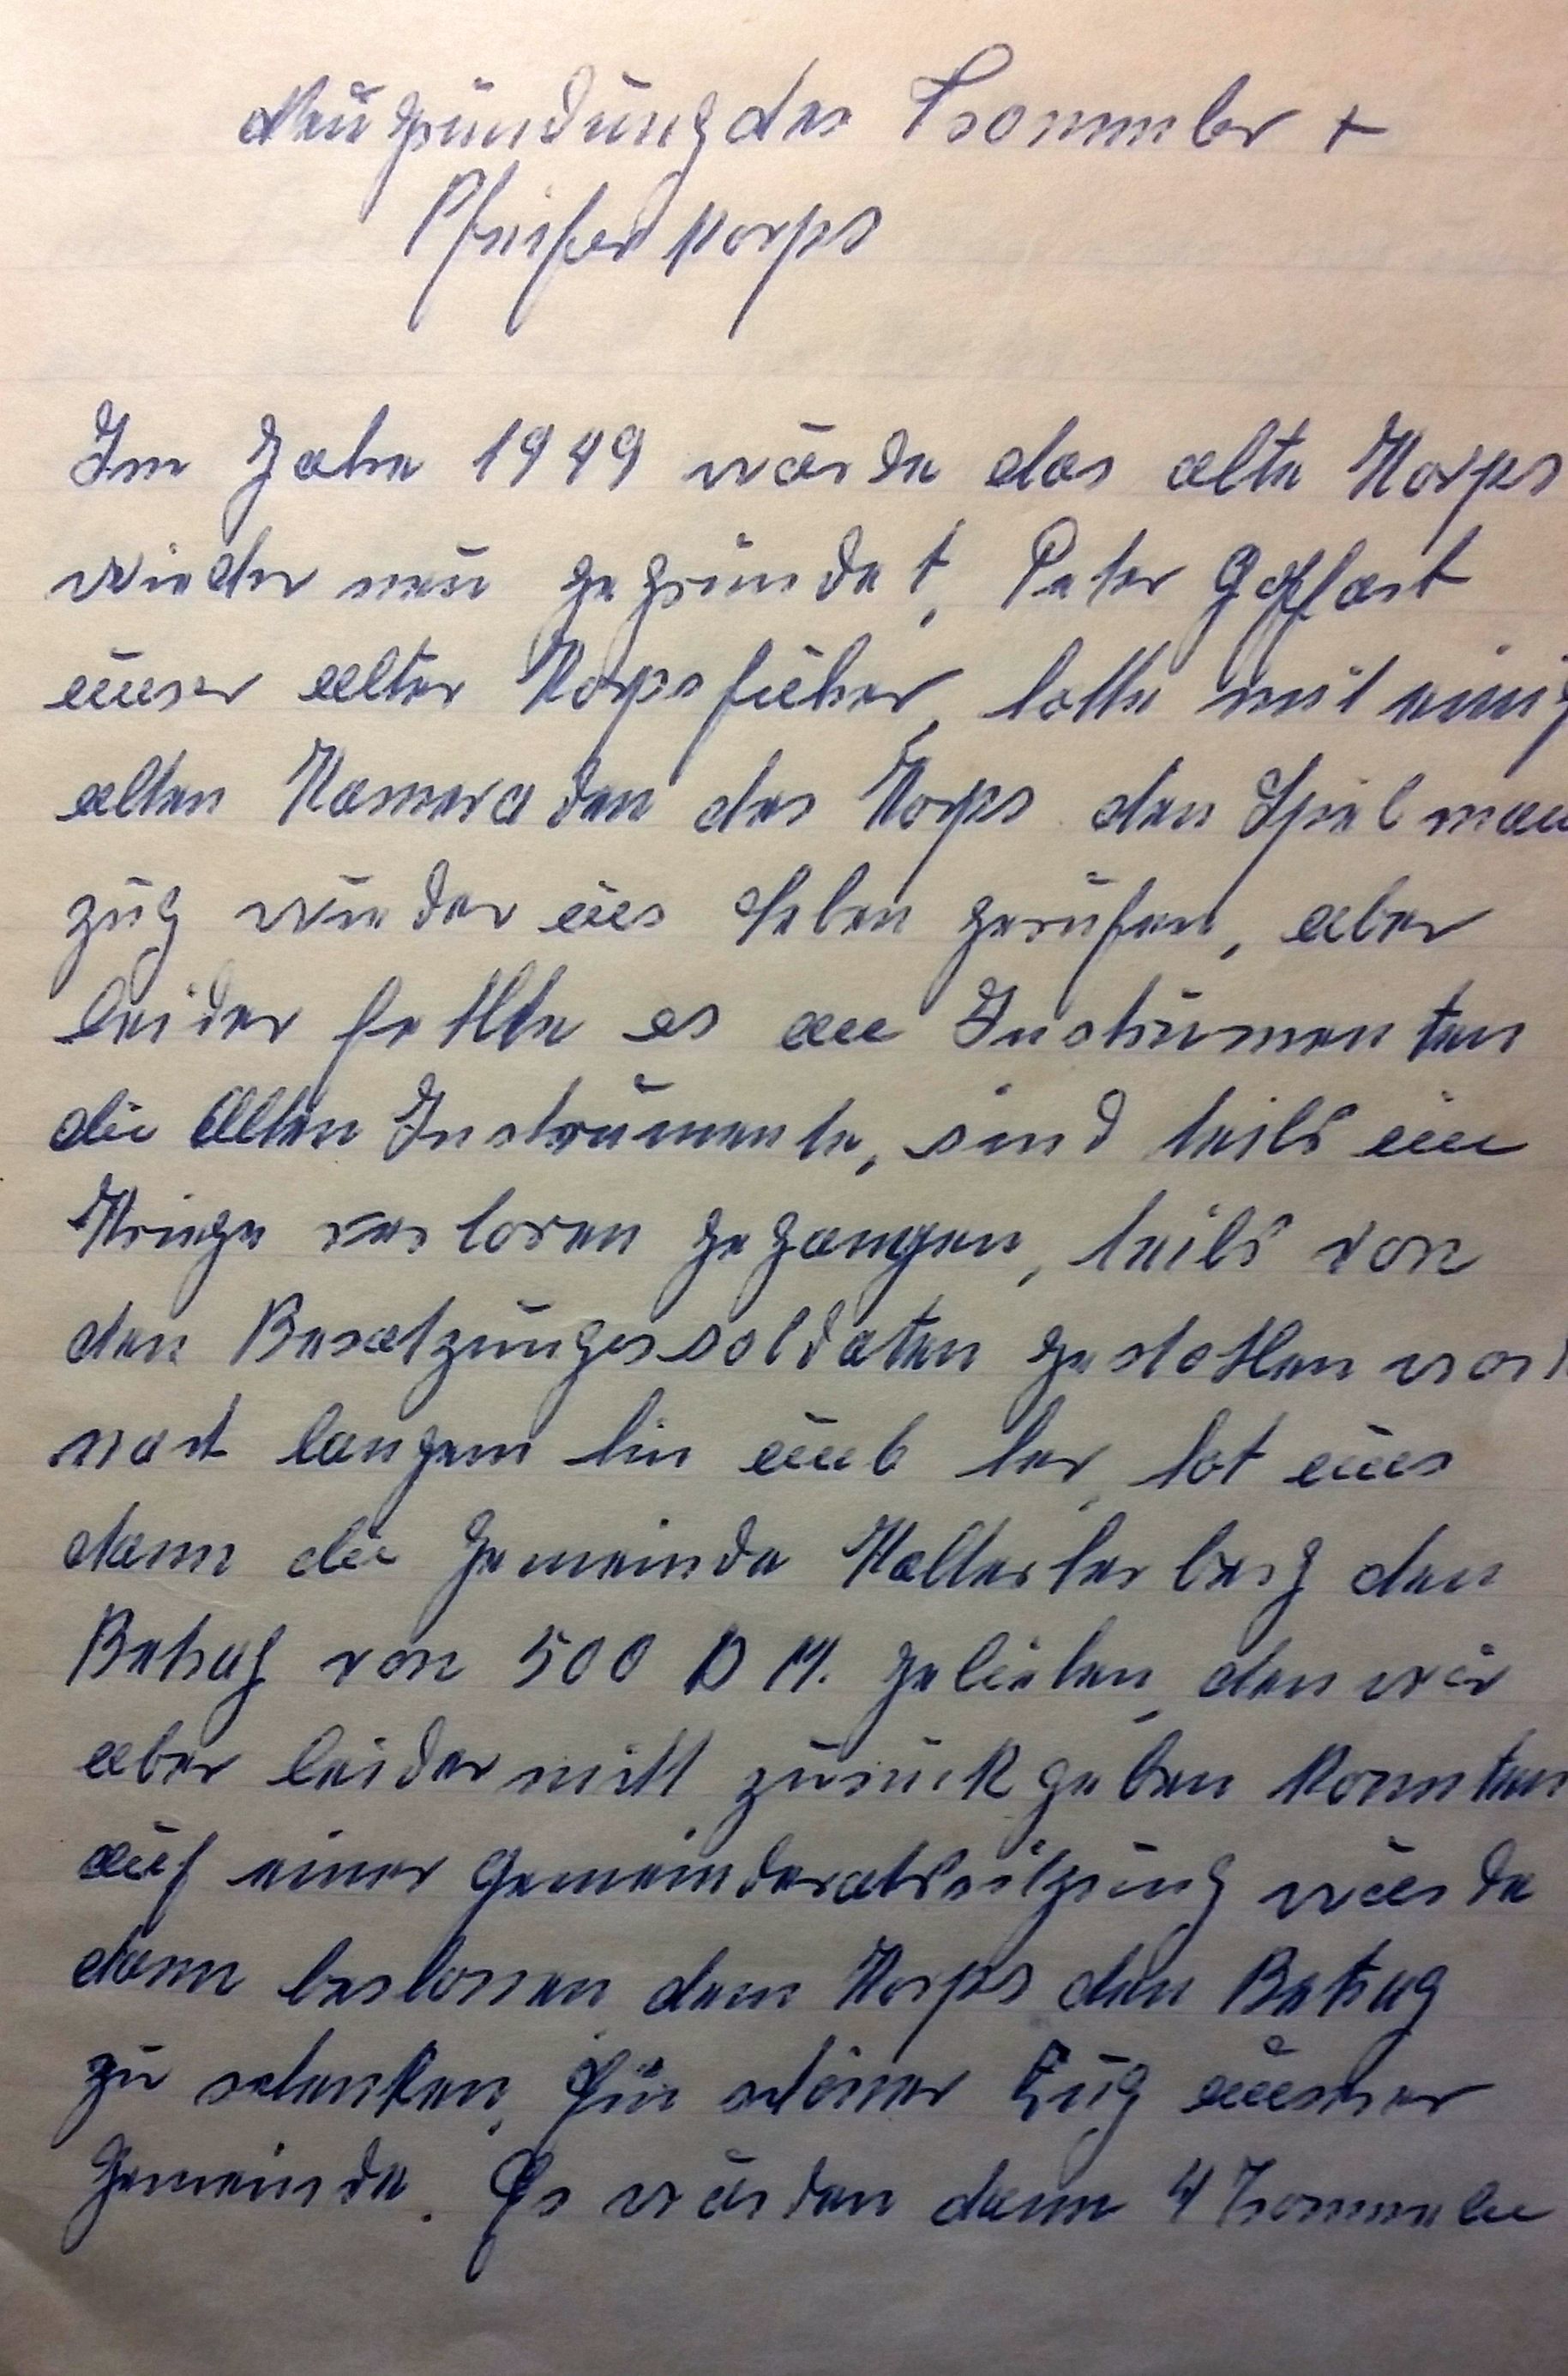 Neugründung des Trommler +
Pfeifer Korps
Im Jahre 1949 wurde das alte Korps
wieder neu gegründet, Peter Goffart
unser alter Korpsführer, hatte mit einig
alten Kameraden des Korps den Spielman
zug wieder ins Leben gerufen, aber
leider fehlte es an Instrumenten
die Alten Instrumente, sind teils im
Kriege verloren gegangen, teils von
den Besatzungssoldaten gestohlen word
nach langem hin und her, hat uns
dann die Gemeinde Kalterherberg den
Betrag von 500 DM. geliehen, den wir
aber leider nicht zurück geben konnten
auf einer Gemeinderatssitzung wurde
dann beslossen dem Korps den Betrag
zu schenken, Ein schöner Zug unserer
Gemeinde. Es wurden dann 4 Trommeln